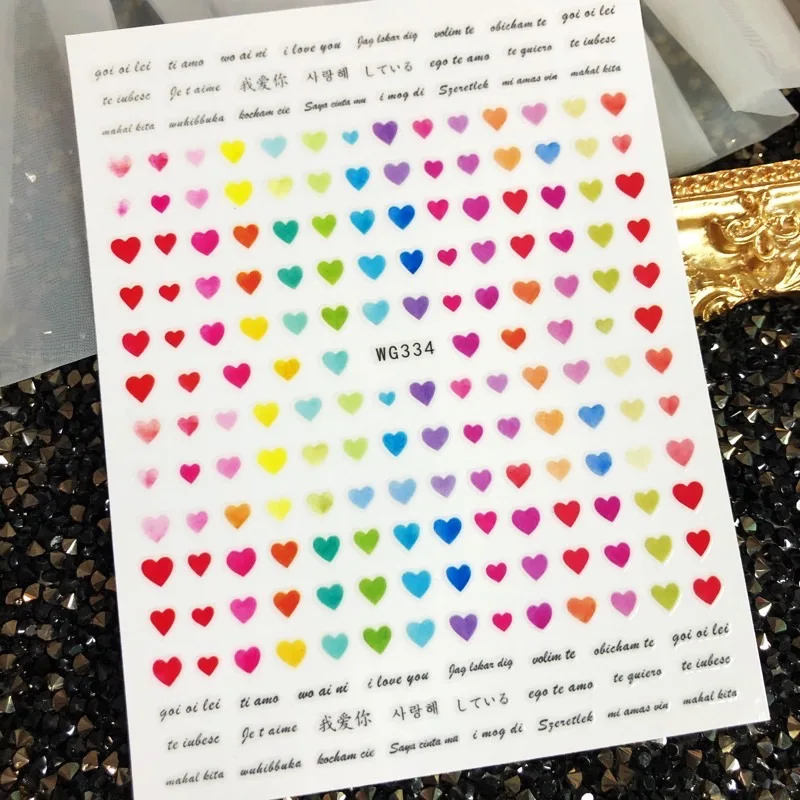 goi oi lei ti amo wo ai ni i love you Jag lskar dig volim te obicham te goi oi lei
te iubesc Je t aime 我爱你 사랑해 している ego te amo te quiero te iubesc
mahal kita wuhibbuka kocham cie Saya cinta mu i mog di Szeretlek mi amas vin mahal kita
WG334
goi oi lei ti amo wo ai ni i love you Jag lskar dig volim te obicham te goi oi lei
te iubesc Je t aime 我爱你 사랑해 している ego te amo te quiero te iubesc
mahal kita wuhibbuka kocham cie Saya cinta mu i mog di Szeretlek mi amas vin mahal kita